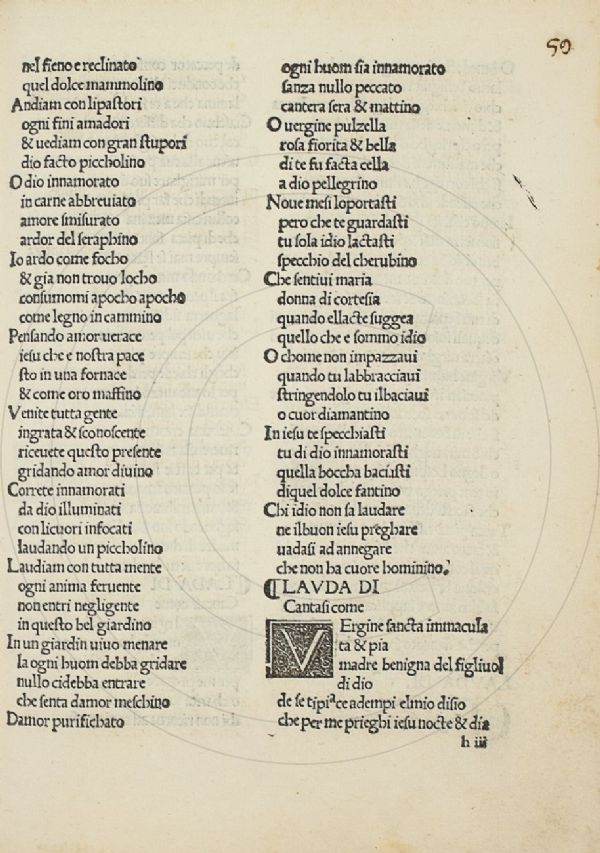 59
nel fieno e reclinato
quel dolce mammolino
Andiam con lipastori
ogni fini amadori
& uediam con gran stupori
dio facto picholino
O dio innamorato
in carne abbreuiato
amore smisurato
ardor del seraphino
Io ardo come focho
& gia non trouo locho
consumomi apocho apocho
come legno in cammino
Pensando amor uerace
iesu che e nostra pace
sto in una fornace
& come oro maffino
Venite tutta gente
ingrata & sconoscente
riceuete questo presente
gridando amor diuino
Correte innamorati
da dio illuminati
con licuori infocati
laudando un piccholino
Laudiam con tutta mente
ogni anima feruente
non entri negligente
in questo bel giardino
In un giardin uiuo menare
la ogni huom debba gridare
nullo cidebba entrare
che senta damor meschino
Damor purifichato
ogni huom sia innamorato
sanza nullo peccato
cantera sera & mattino
O uergine pulzella
rosa fiorita & bella
di te fu facta cella
a dio pellegrino
Noue mesi loportasti
pero che te guardasti
tu sola idio lactasti
specchio del cherubino
Che sentiui maria
donna di cortesia
quando ellacte suggea
quello che e sommo idio
O chome non impazzaui
quando tu labbracciaui
stringendolo tu ilbaciaui
o cuor diamantino
In iesu te specchiasti
tu di dio innamorasti
quella boccha baciasti
diquel dolce fantino
Chi idio non sa laudare
ne ilbuon iesu preghare
uadasi ad annegare
che non ha cuore hominino.
¶LAVDA DI
Cantasi come
VErgine sancta immacula
ta & pia
madre benigna del figliuol
di dio
de se tipiace adempi elmio disio
che per me prieghi iesu nocte & dia
h iii